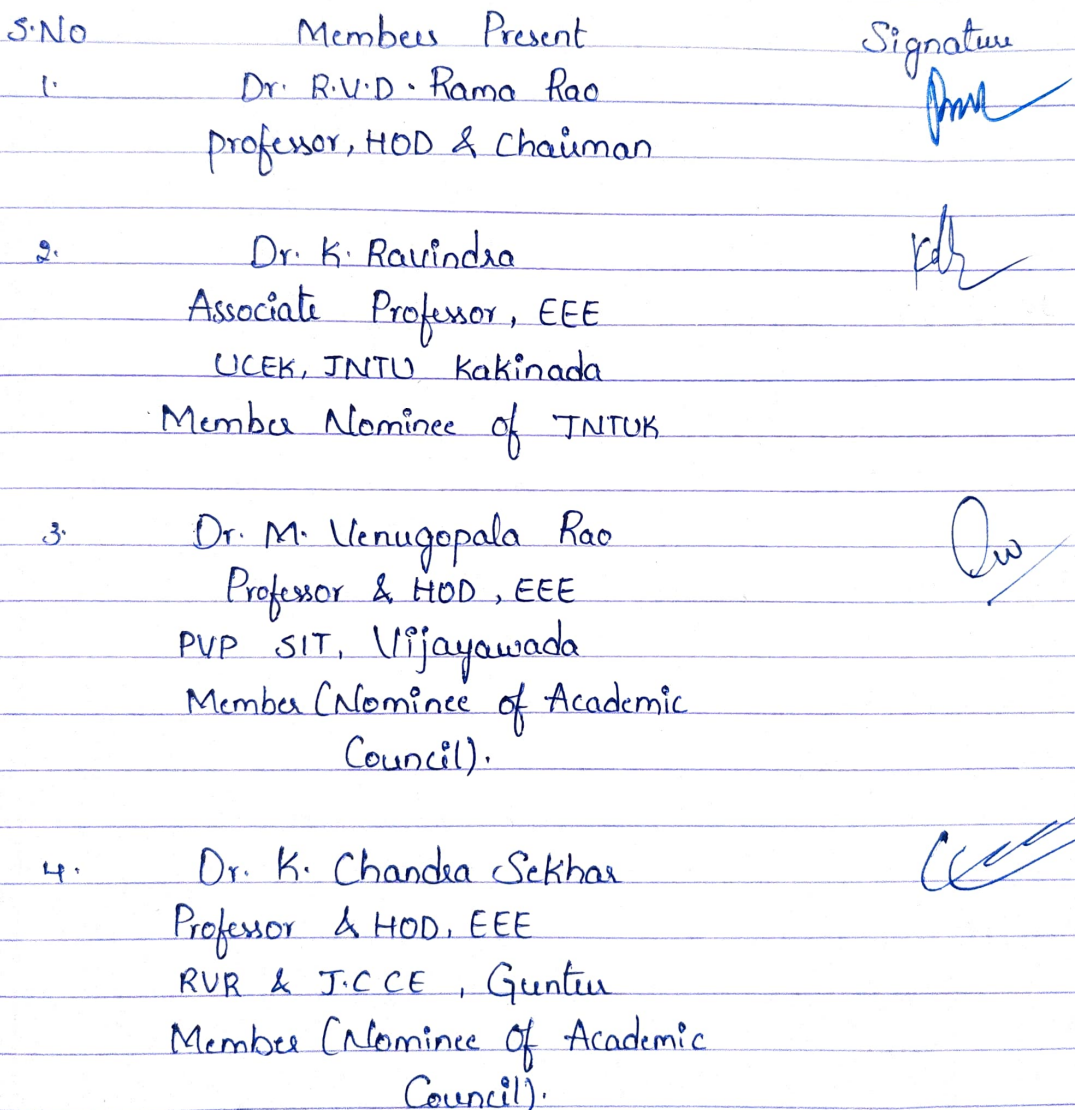 S.No Members Present Signature
1. Dr. R.V.D. Rama Rao
professor, HOD & Chairman
2. Dr. K. Ravindra
Associate Professor, EEE
UCEK, JNTU Kakinada
Member Nominee of JNTUK
3. Dr. M. Venugopala Rao
Professor & HOD, EEE
PVP SIT, Vijayawada
Member (Nominee of Academic
Council).
4. Dr. K. Chandra Sekhar
Professor & HOD, EEE
RVR & J.C CE, Guntur
Member (Nominee Of Academic
Council).